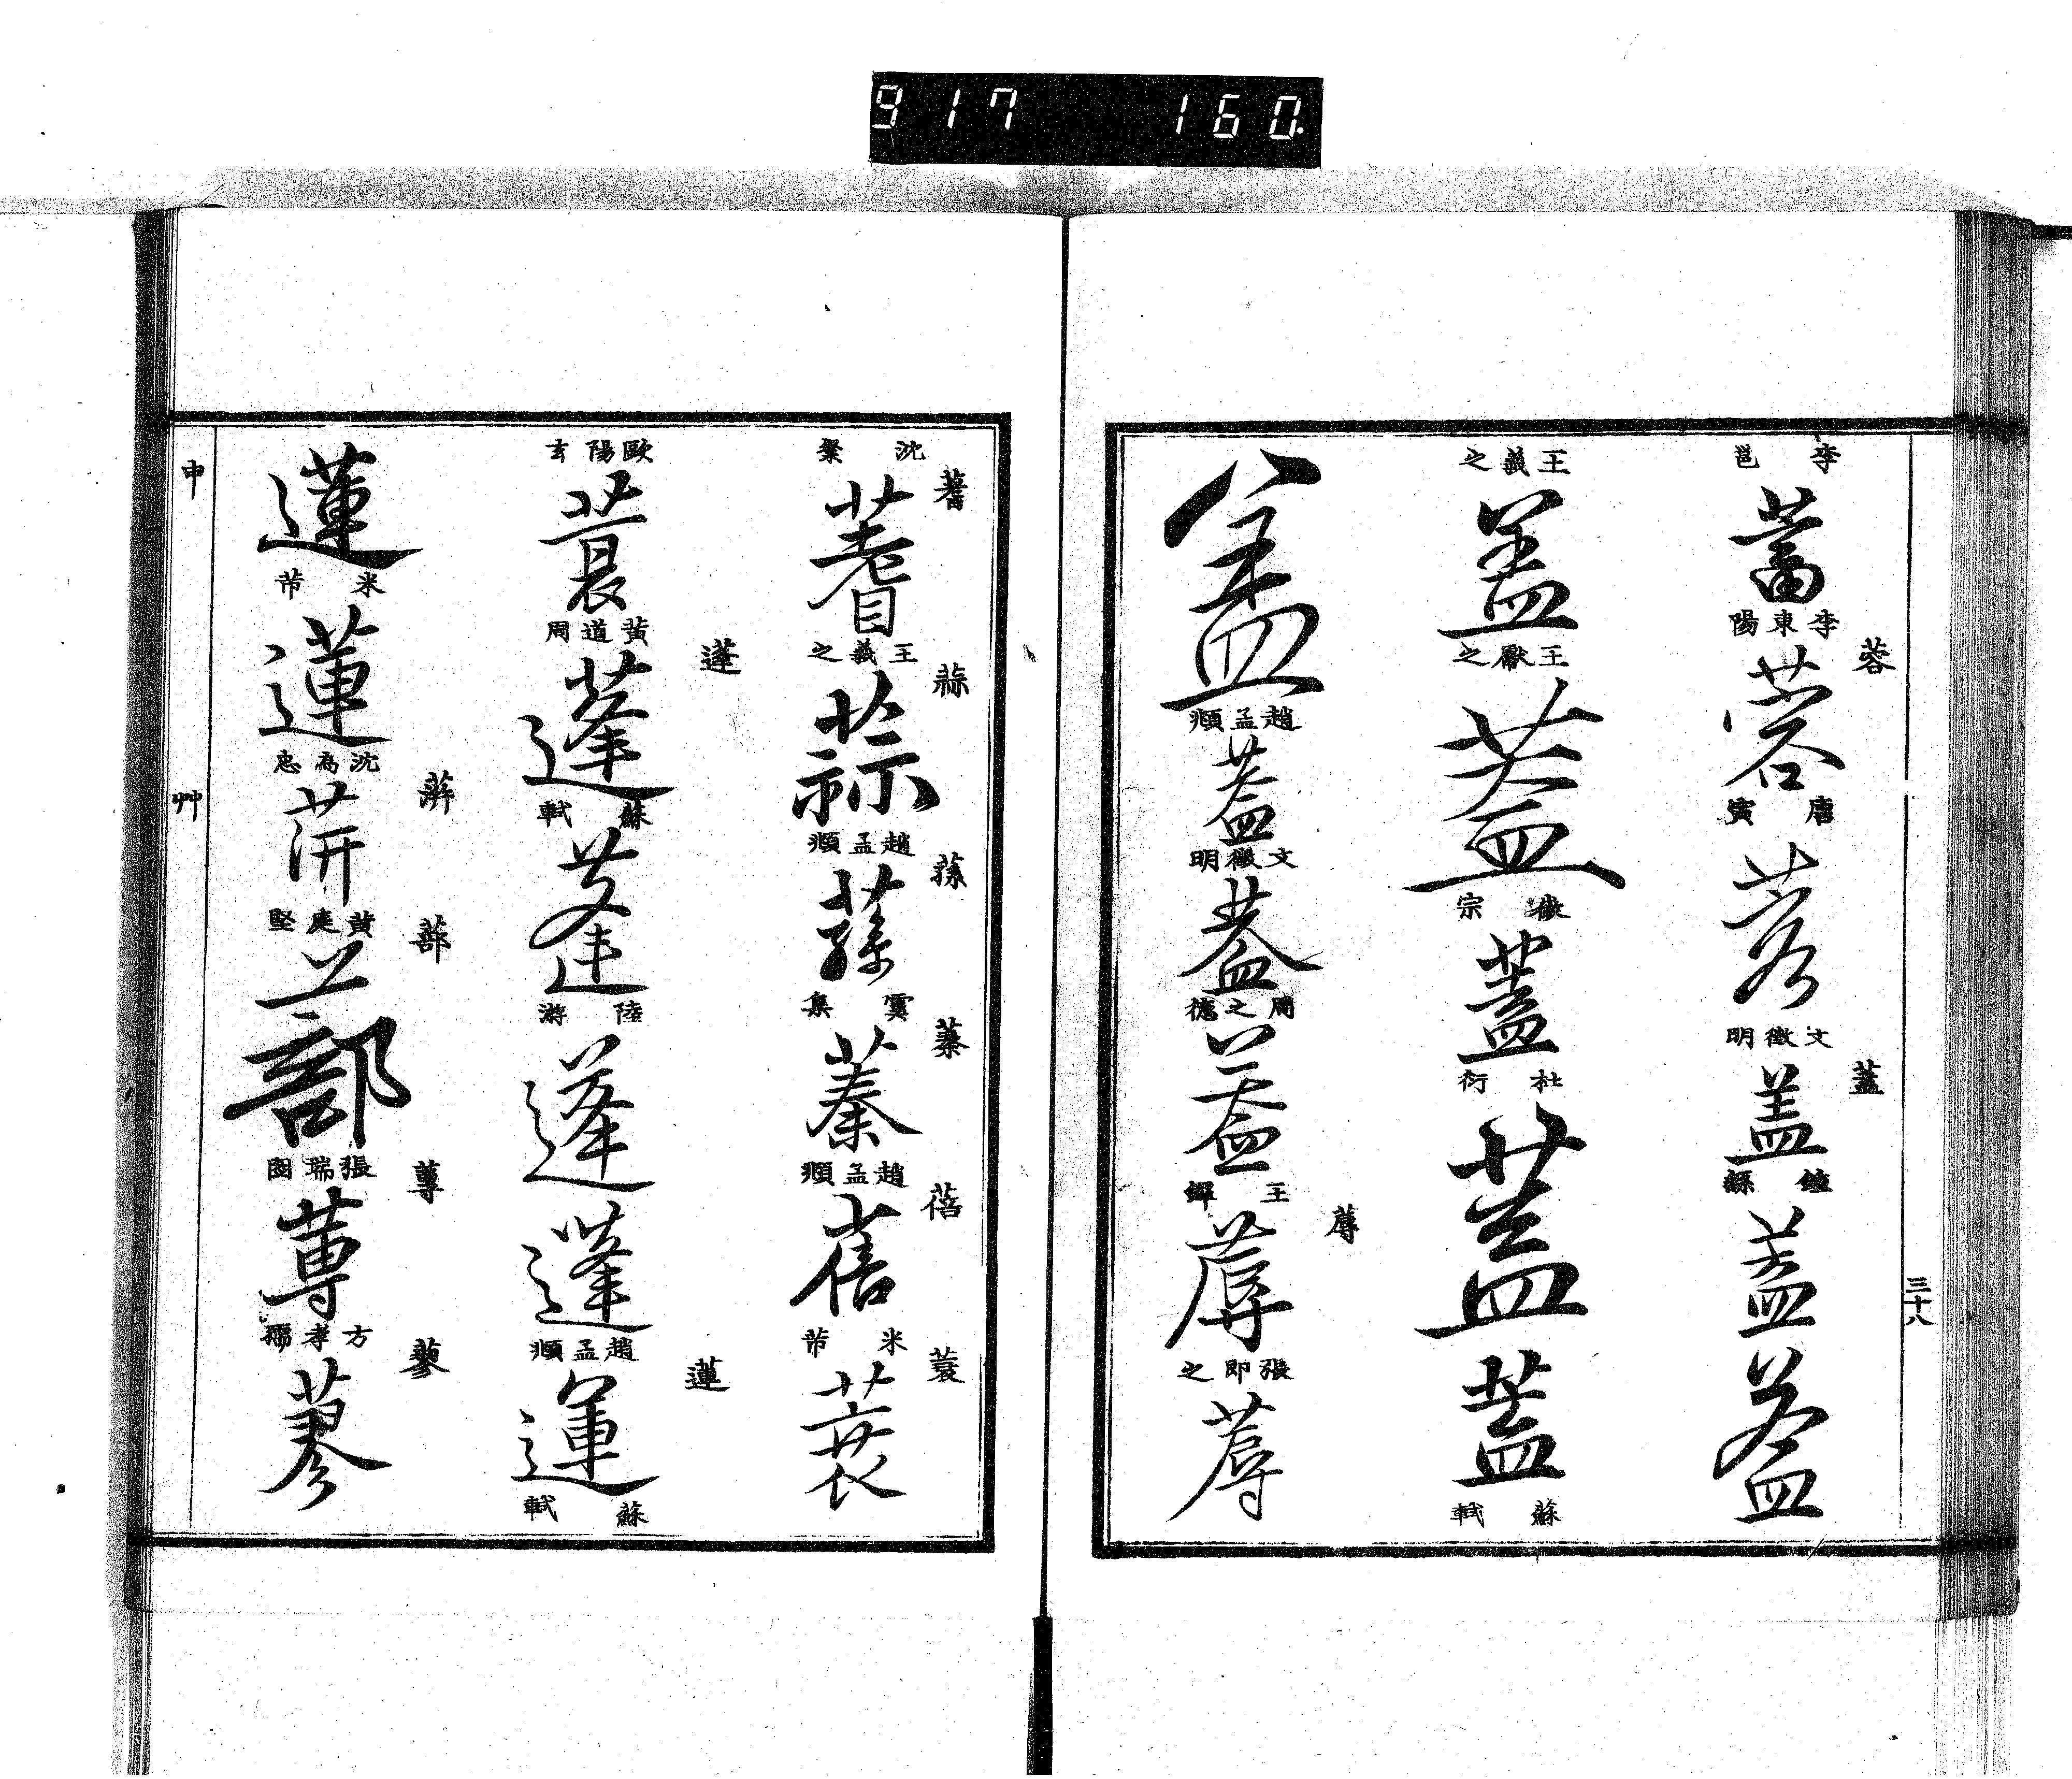 917 160.
李邕
蓄
李東陽
蓉
蓉
唐寅
蓉
文徵明
蓋
蓋
鍾繇
蓋
蓋
三十八
王羲之
蓋
王獻之
蓋
徽宗
蓋
杜衍
蓋
蓋
蘇軾
蓋
趙孟頫
蓋
文徵明
蓋
周之德
蓋
王鐸
蓐
蓐
張即之
蓐
沈粲
蓍
蓍
王羲之
蒜
蒜
趙孟頫
蓀
蓀
虞集
蓁
蓁
趙孟頫
蓓
蓓
米芾
蓑
蓑
歐陽玄
蓑
黃道周
蓬
蓬
蘇軾
蓬
陸游
蓬
蓬
趙孟頫
蓮
蓮
蘇軾
蓮
米芾
蓮
沈為忠
黃庭堅
蔀
蔀
張瑞圖
蓴
蓴
方孝孺
蓼
蓼
申
艸